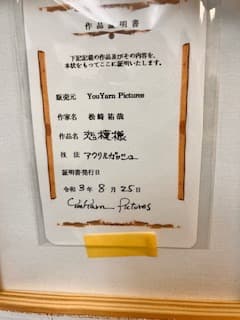 作品証明書
下記記載の作品及びその内容を、
本状をもってここに証明いたします。
販売元 YouYarn Pictures
作家名 松崎祐哉
作品名
技法 アクリルガッシュ
証明書発行日
令和 3年 8月 25日
YouYarn Pictures